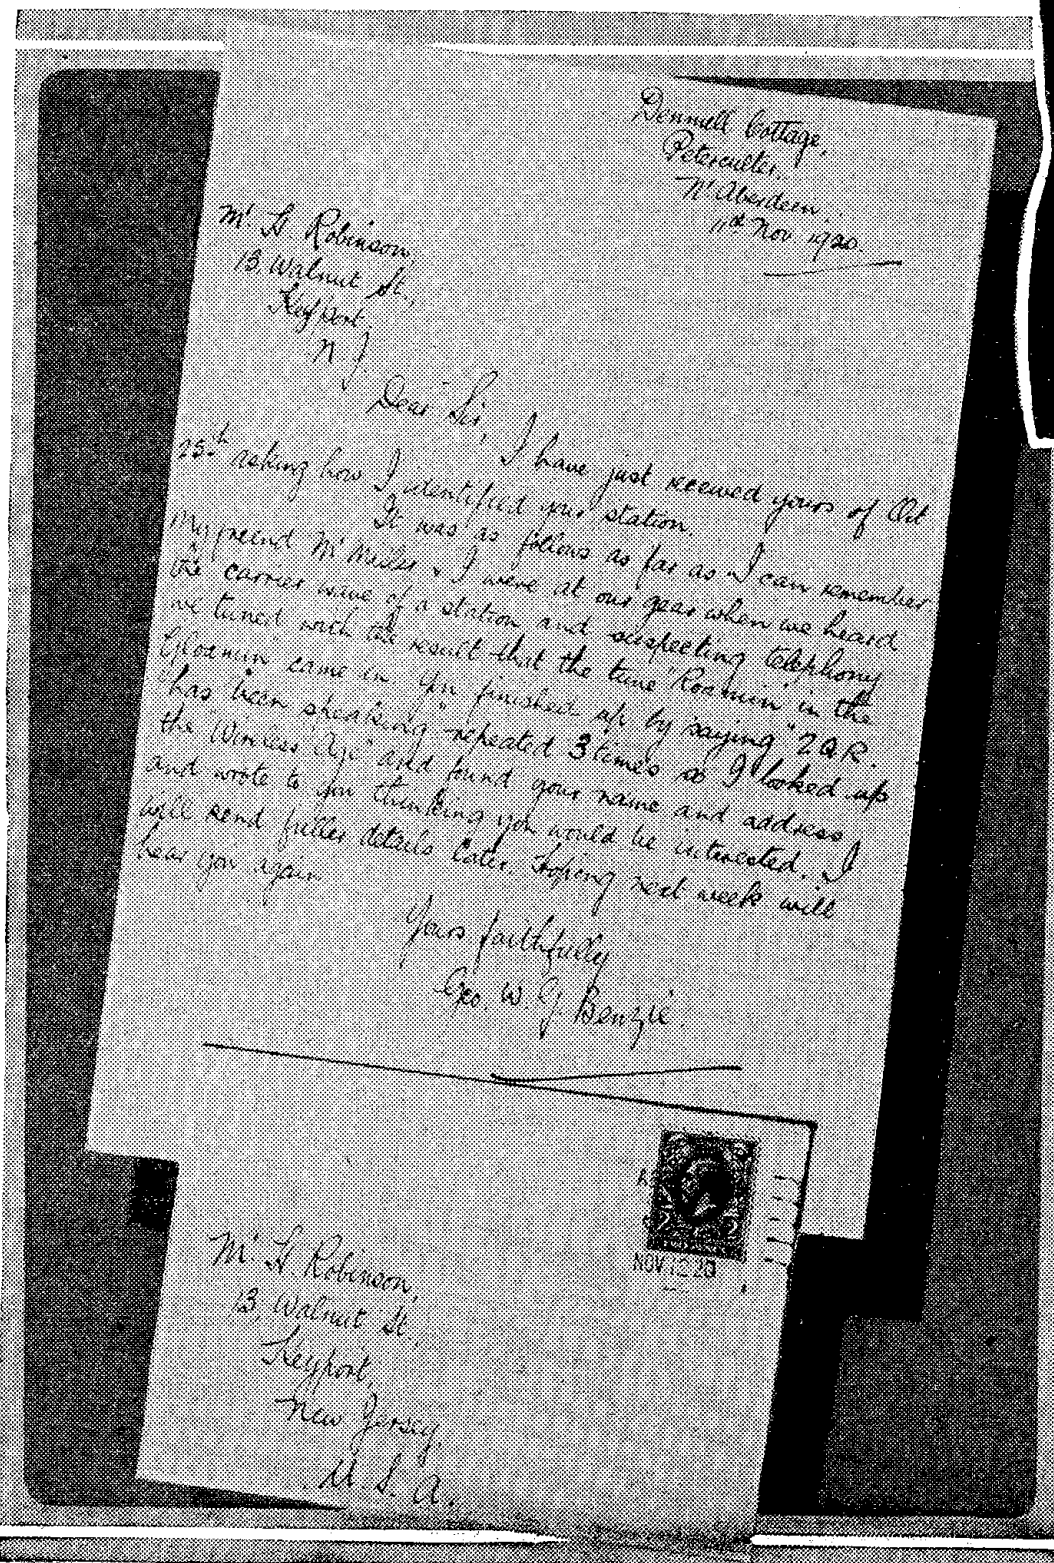 Cottage,
Peterculter,
Nr Aberdeen.
Nov 1920
Mr H Robinson,
13, Walnut St.,
Keyport,
N. J.
Dear Sir, I have just received yours of Oct
25th asking how I identified your station.
It was as follows as far as I can remember
My friend Mr Miller & I were at our gear when we heard
the carrier wave of a station and suspecting telephony
we tuned with the result that the tune "Roamin' in the
Gloamin" came in. You finished up by saying "2QR.
"has been speaking" repeated 3 times so I looked up
the "Wireless Age" and found your name and address
and wrote to you thinking you would be interested. I
will send fuller details later. Hoping next week will
hear you again.
Yours faithfully
Geo. W. G. Benzie.
NOV 12 20
Mr H. Robinson,
13, Walnut St.,
Keyport,
New Jersey,
U. S. A.